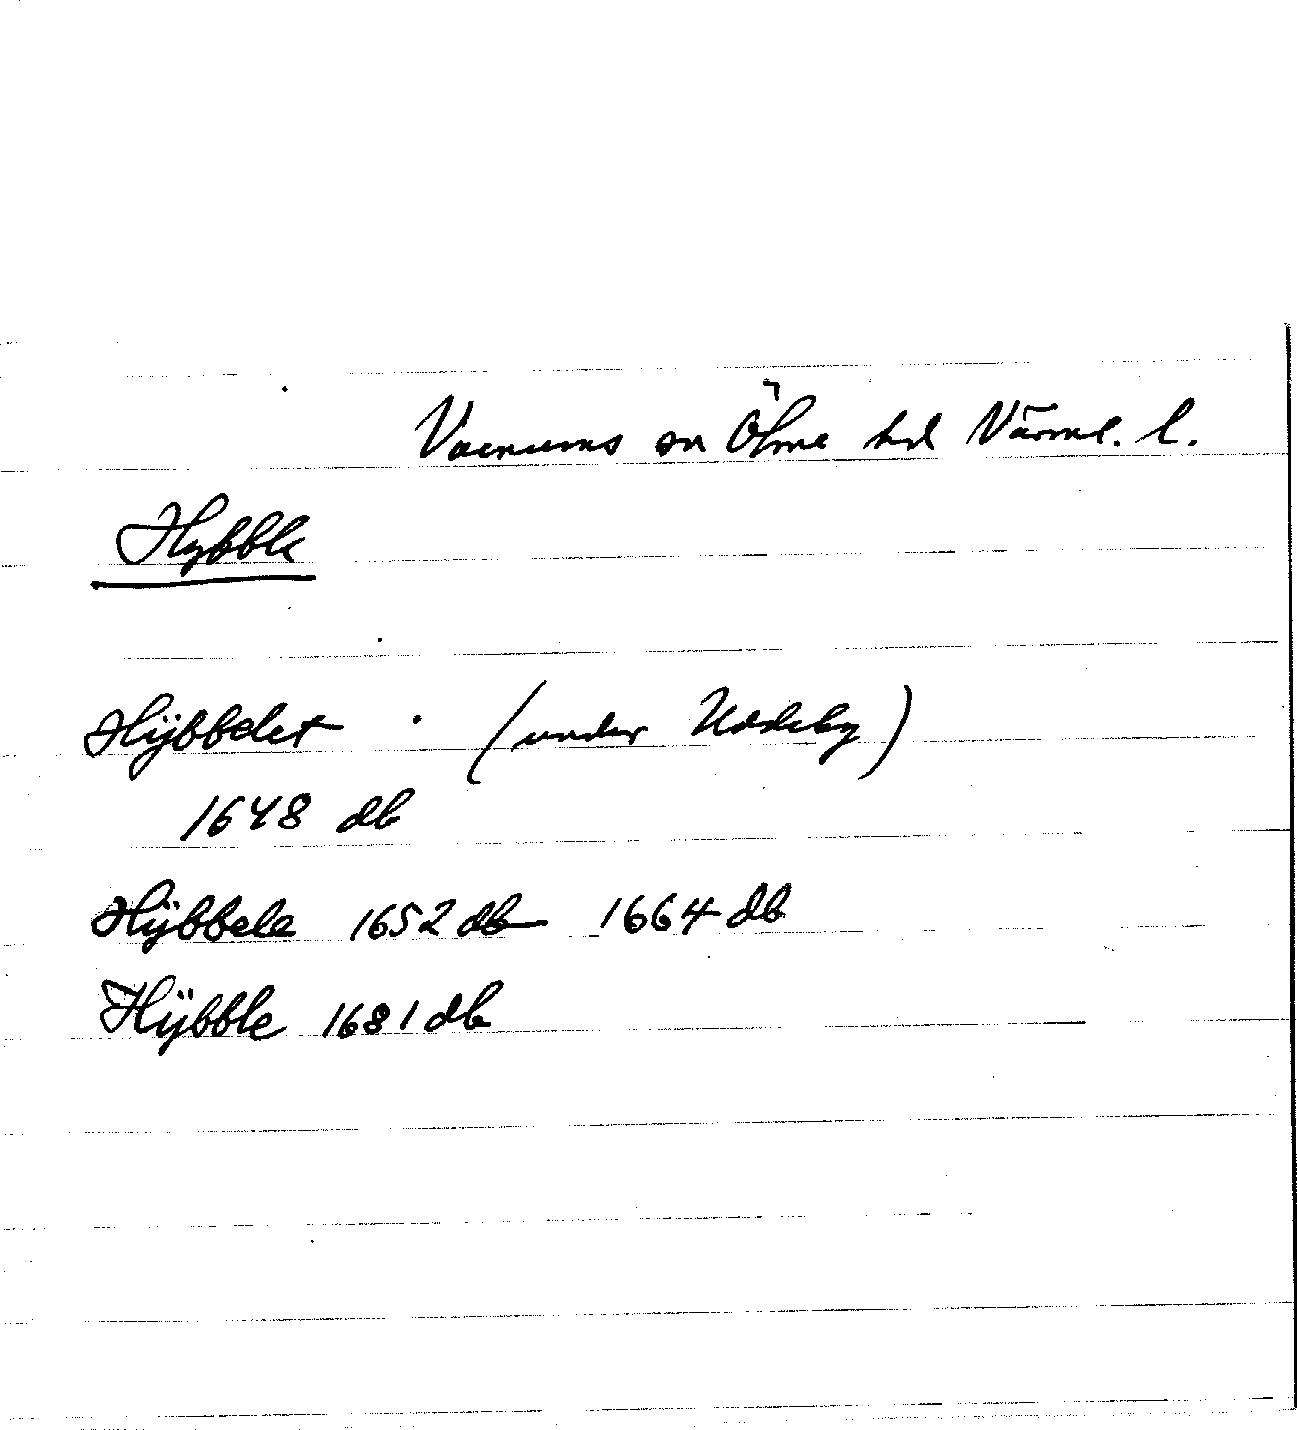 Varnums sn Ölme hd Värml. l.
Hybble
Hÿbbelet (under Uddeby)
1648 db
Hÿbbele 1652 db 1664 db
Hÿbble 1681 db